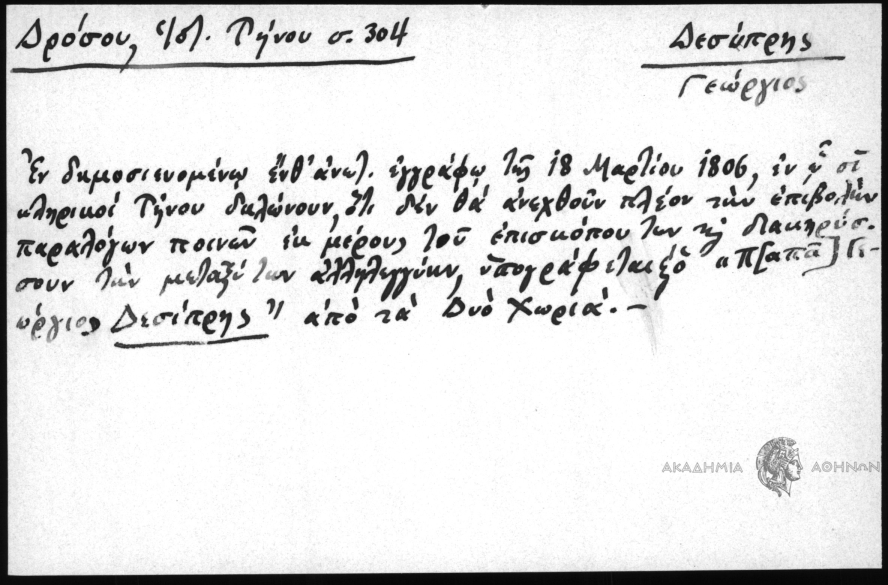 Δρόσου, Ἱστ. Τήνου σ. 304
Δεσύπρης
Γεώργιος
Ἐν δημοσιευομένῳ ἔνθ' ἀνωτ. ἐγγράφῳ τῆς 18 Μαρτίου 1806, ἐν ᾧ οἱ
κληρικοί Τήνου δηλώνουν, ὅτι δέν θά ἀνεχθοῦν πλέον τήν ἐπιβολήν
παραλόγων ποινῶν ἐκ μέρους τοῦ ἐπισκόπου των καί διακηρύσ-
σουν τήν μεταξύ των ἀλληλεγγύην, ὑπογράφεται ὁ "Π[απᾶ] Γε-
ώργιος Δεσίπρης" ἀπό τά Δυό Χωριά. –
ΑΚΑΔΗΜΙΑ ΑΘΗΝΩΝ